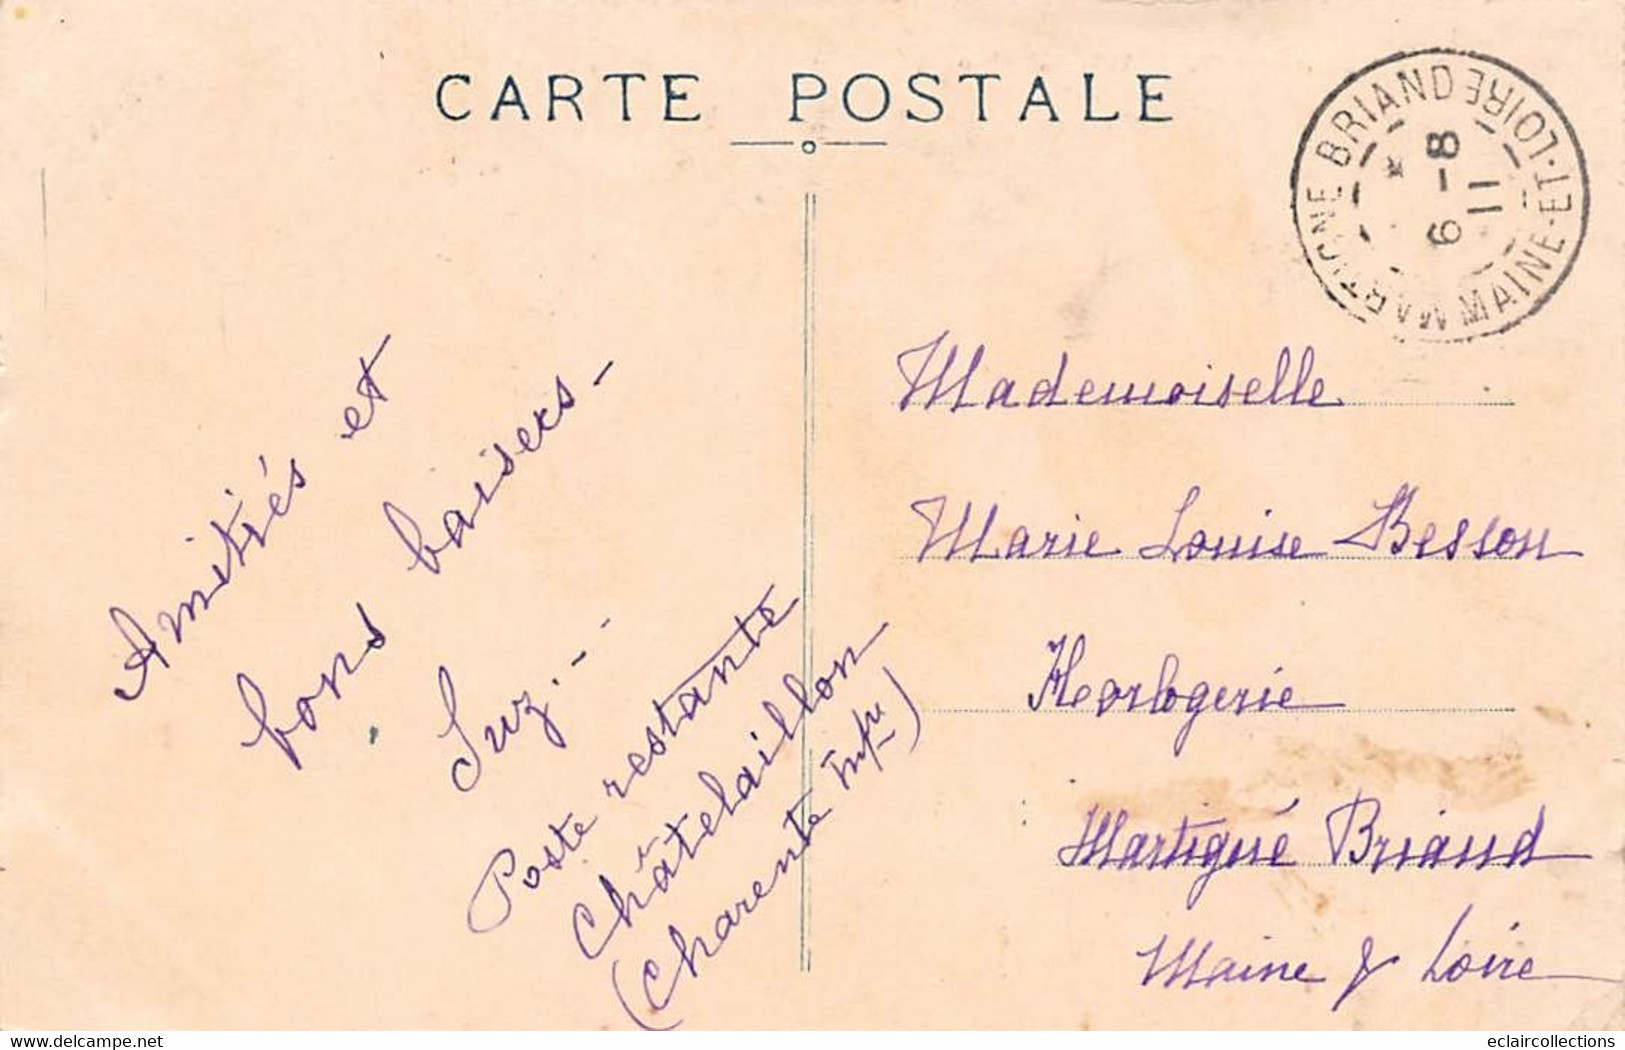 CARTE POSTALE
MARTIGNE BRIAND MAINE-ET-LOIRE
6 -8
11
Amitiés et
bons baisers -
Suz. - -
Poste restante
Châtelaillon
(Charente Infre)
Mademoiselle
Marie Louise Besson
Horlogerie
Martigné Briand
Maine & Loire
eclaircollections